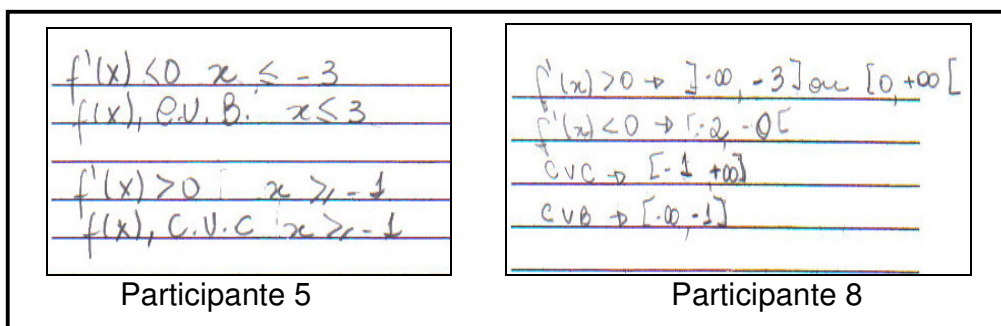 f'(x) < 0 x ≤ -3
f(x), C.V.B. x ≤ 3
f'(x) > 0 x ≥ -1
f(x), C.V.C x ≥ -1
Participante 5
f'(x) > 0 → ]-∞, -3] ou [0, +∞[
f'(x) < 0 → [-2, -0[
CVC → [-1 +∞]
CVB → [-∞ -1]
Participante 8